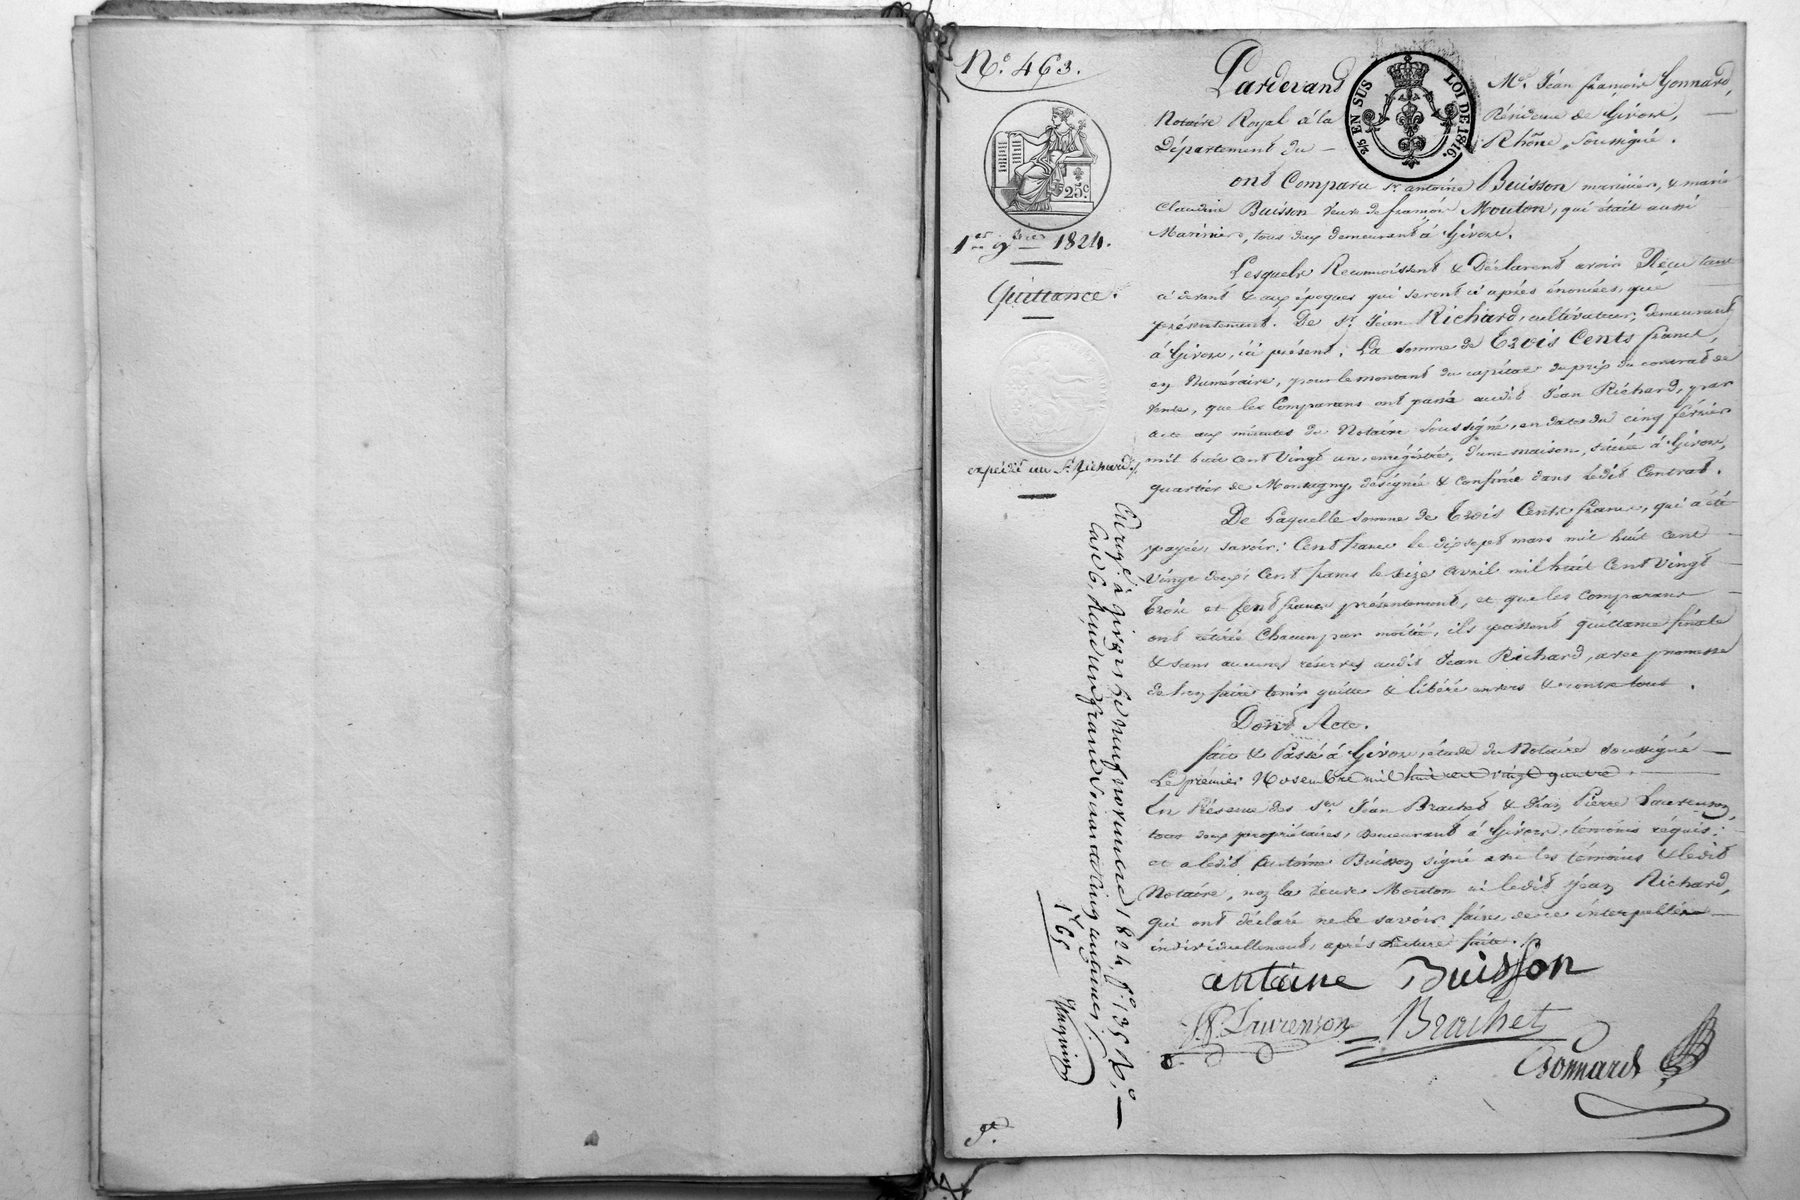 N.° 463.
25.c
1.er 9.bre 1824.
Quittance.
expédié au S.r Richard
25 EN SUS LOI DE 1816.
Pardevant M.e Jean françois Gonnard,
Notaire Royal à la Résidence de Givors,
Département du Rhône, Soussigné.
ont Comparu S.r antoine Buisson marinier, & marie
Claudine Buisson veuve de françois Mouton, qui était aussi
Marinier, tous deux demeurant à Givors.
Lesquels Reconnoissent & Déclarent avoir Reçu tant
ci devant & aux époques qui seront ci après énoncées, que
présentement. De S.r Jean Richard, cultivateur, demeurant
à Givors, ici présent. La somme de Trois Cents francs,
en Numéraire, pour le montant du capital du prix du contrat de
Vente, que les Comparans ont passé audit Jean Richard, par
acte aux minutes du Notaire Soussigné, en date du cinq février
mil huit cent Vingt un, enrégistré, d'une maison, située à Givors,
quartier de Montagny, désignée & confinée dans ledit Contrat.
De Laquelle somme de Trois Cents francs, qui a été
payée, savoir: Cent francs le dix sept mars mil huit cent
Vingt deux, Cent francs le seize avril mil huit Cent Vingt
Trois et Cent francs présentement, et que les comparans
ont retirés Chacun par moitié, ils passent quittance finale
& sans aucunes réserves audit Jean Richard, avec promesse
de l'en faire tenir quitte & libéré envers & contre tous.
Dont Acte.
fait & Passé à Givors, étude du Notaire soussigné
Le prémier Novembre mil huit cent vingt quatre.
En Présence des S.rs Jean Brachet & Jean Pierre Laurenson
tous deux propriétaires, demeurant à Givors, témoins réquis;
et a ledit Antoine Buisson signé avec les témoins & ledit
Notaire, non la Veuve Mouton ni ledit Jean Richard,
qui ont déclaré ne le savoir faire, de ce interpellés
individuellement, après Lecture faite.
antoine Buisson
J.P. Laurenson Brachet
Gonnard
Enreg.é à givors le neuf novembre 1824, f.° 135 R.°
Case 6 Reçu un franc soixante cinq centimes
1.f 65